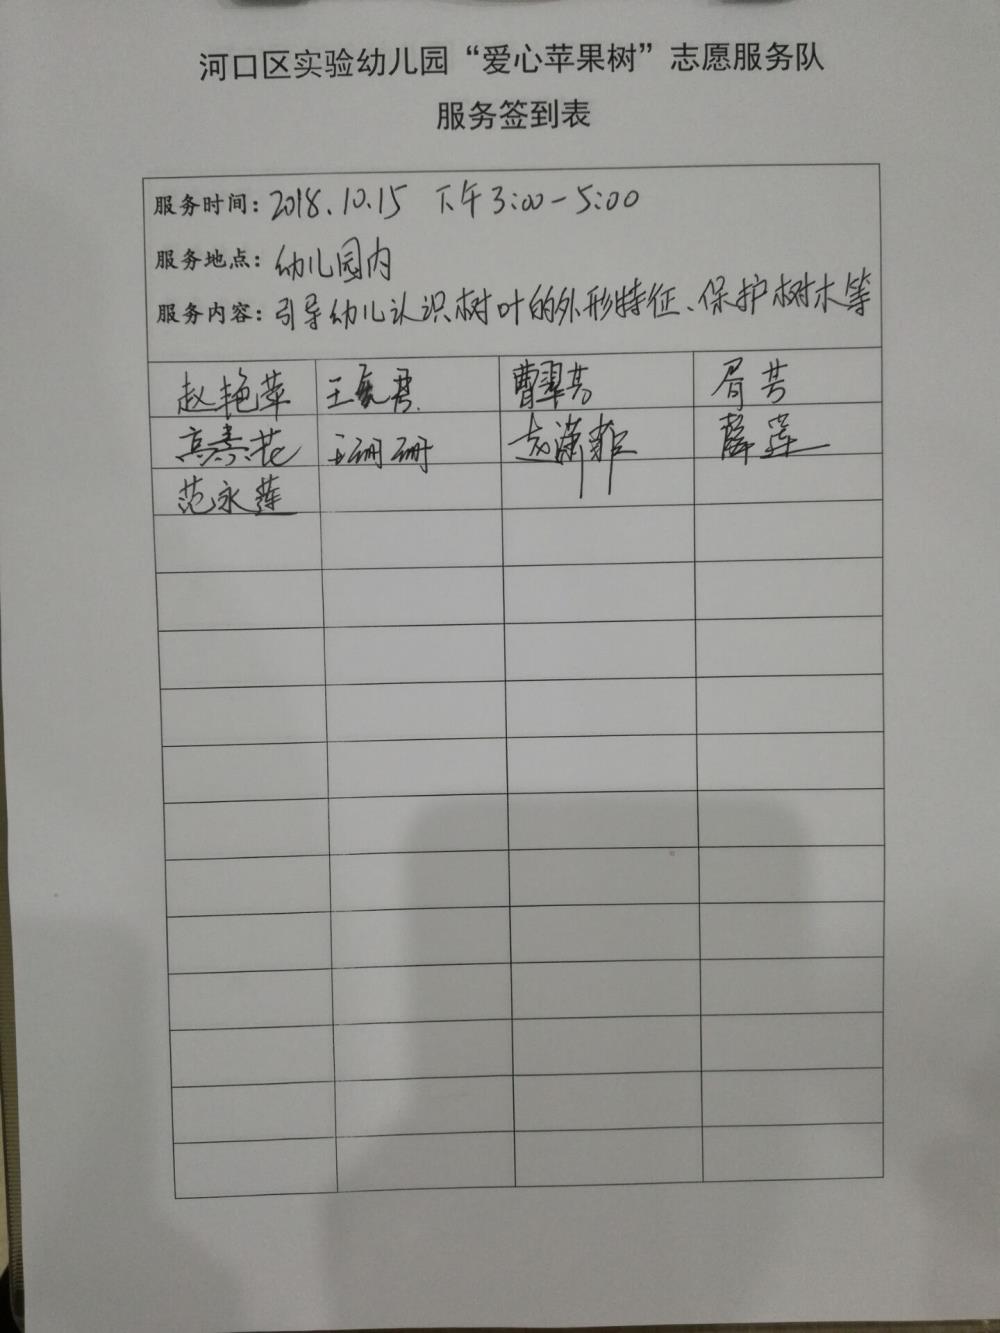 河口区实验幼儿园“爱心苹果树”志愿服务队
服务签到表
服务时间：2018.10.15 下午3:00-5:00
服务地点：幼儿园内
服务内容：引导幼儿认识树叶的外形特征、保护树木等
赵艳萍 王 君 曹翠芳 胥芸
高素花 王珊珊 赵潇菲 薛莲
范永莲